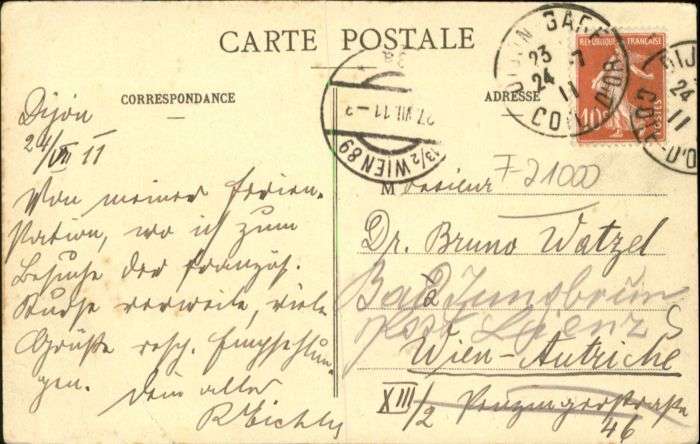 CARTE POSTALE
CORRESPONDANCE
ADRESSE
RÉPUBLIQUE FRANÇAISE
10c
POSTES
DIJON GARE
23
24 -7
11
COTE D'OR
DIJ
24
11
COTE-D'O
13/2 WIEN 89
27.VII.11
Dijon
24/VII 11
Von meiner Ferien-
station, wo ich zum
Besuche der französ.
Kurse verweile, viele
Grüße resp. Empfehlun-
gen. Dein alter
R Eichler
Monsieur
7-21000
Dr. Bruno Watzel
Bad Jungbrunn
post Lienz
Wien-Autriche
XIII/2 Penzingerstraße
46